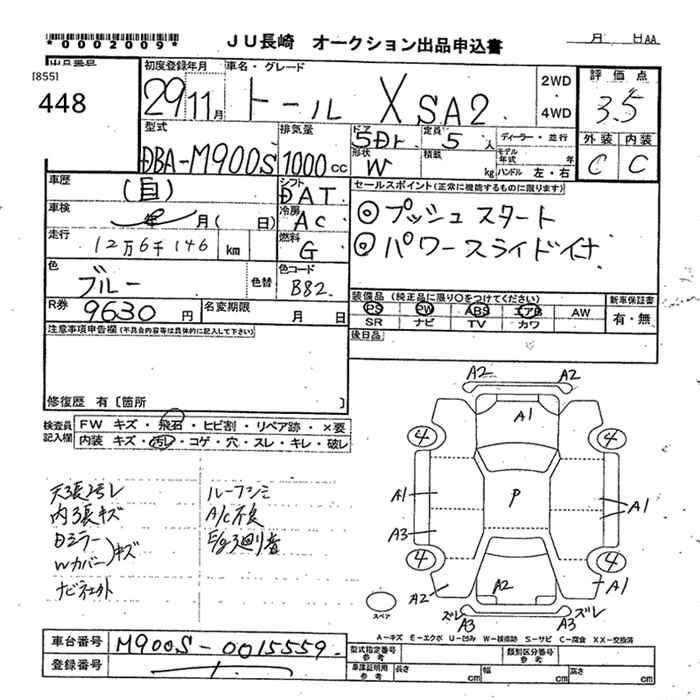 *0002009*
JU長崎 オークション出品申込書
月 日AA
[855]
448
初度登録年月
29 11月
車名・グレード
トール X SA2
2WD
・
4WD
評価点
3.5
外装 内装
C C
型式
DBA-M900S
排気量
1000cc
ドア
5Dr
定員
5人
形状
W
積載
kg
ディーラー・並行
モデル年式 年
ハンドル 左・右
車歴
(自)
車検
年 月( 日)
走行
12万6千146 km
シフト
DAT
冷房
AC
燃料
G
色
ブルー
色替
色コード
B82
セールスポイント(正常に機能するものに限ります)
◎プッシュスタート
◎パワースライド付
R券
9630円
名変期限
月 日
装備品(純正品に限り〇をつけてください)
PS PW ABS エアB AW
SR ナビ TV カワ
新車保証書
有・無
後日品
注意事項申告欄(年具合内容等は具体的に記入して下さい)
修復歴 有〔箇所 〕
検査員
記入欄
FW キズ・飛石・ヒビ割・リペア跡・×要
内装 キズ・汚レ・コゲ・穴・スレ・キレ・破レ
天張汚レ
内張キズ
日ミラー
Wカバー)キズ
ルーフシミ
A/C不良
A2 A2
A1
4 4
A1 P A1
A3
4 4
A2 A2 A1
ズレ ズレ
A3 A3
スペア
A-キズ E-エクボ U-凹み W-補修跡 S-サビ C-腐食 XX-交換済
車台番号
M900S-0015559
登録番号
型式指定番号
参考
類別区分番号
参考
車庫証明用
参考
長さ cm
幅 cm
高さ cm